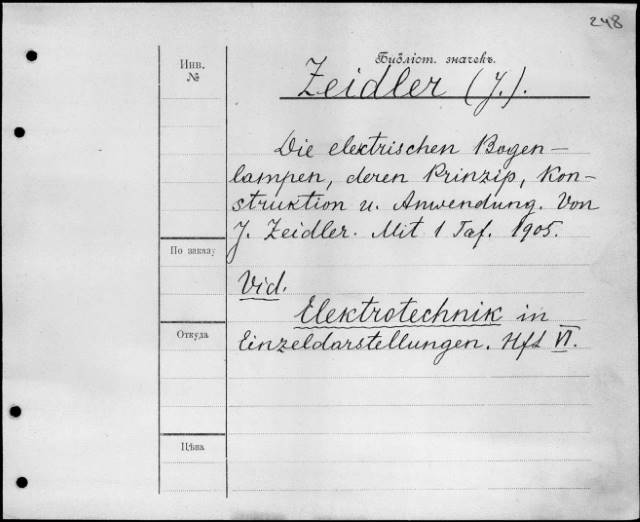 248
Инв.
№
Библіот. значекъ.
Zeidler (J.).
Die elektrischen Bogen-
lampen, deren Prinzip, Kon-
struktion u. Anwendung. Von
J. Zeidler. Mit 1 Taf. 1905.
По заказу
Vid.
Elektrotechnik in
Откуда
Einzeldarstellungen. Hft VI.
Цѣна